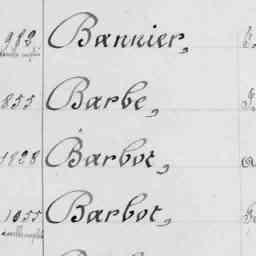 983 Bannier,
855 Barbe,
1828 Barbot,
1055 Barbot,